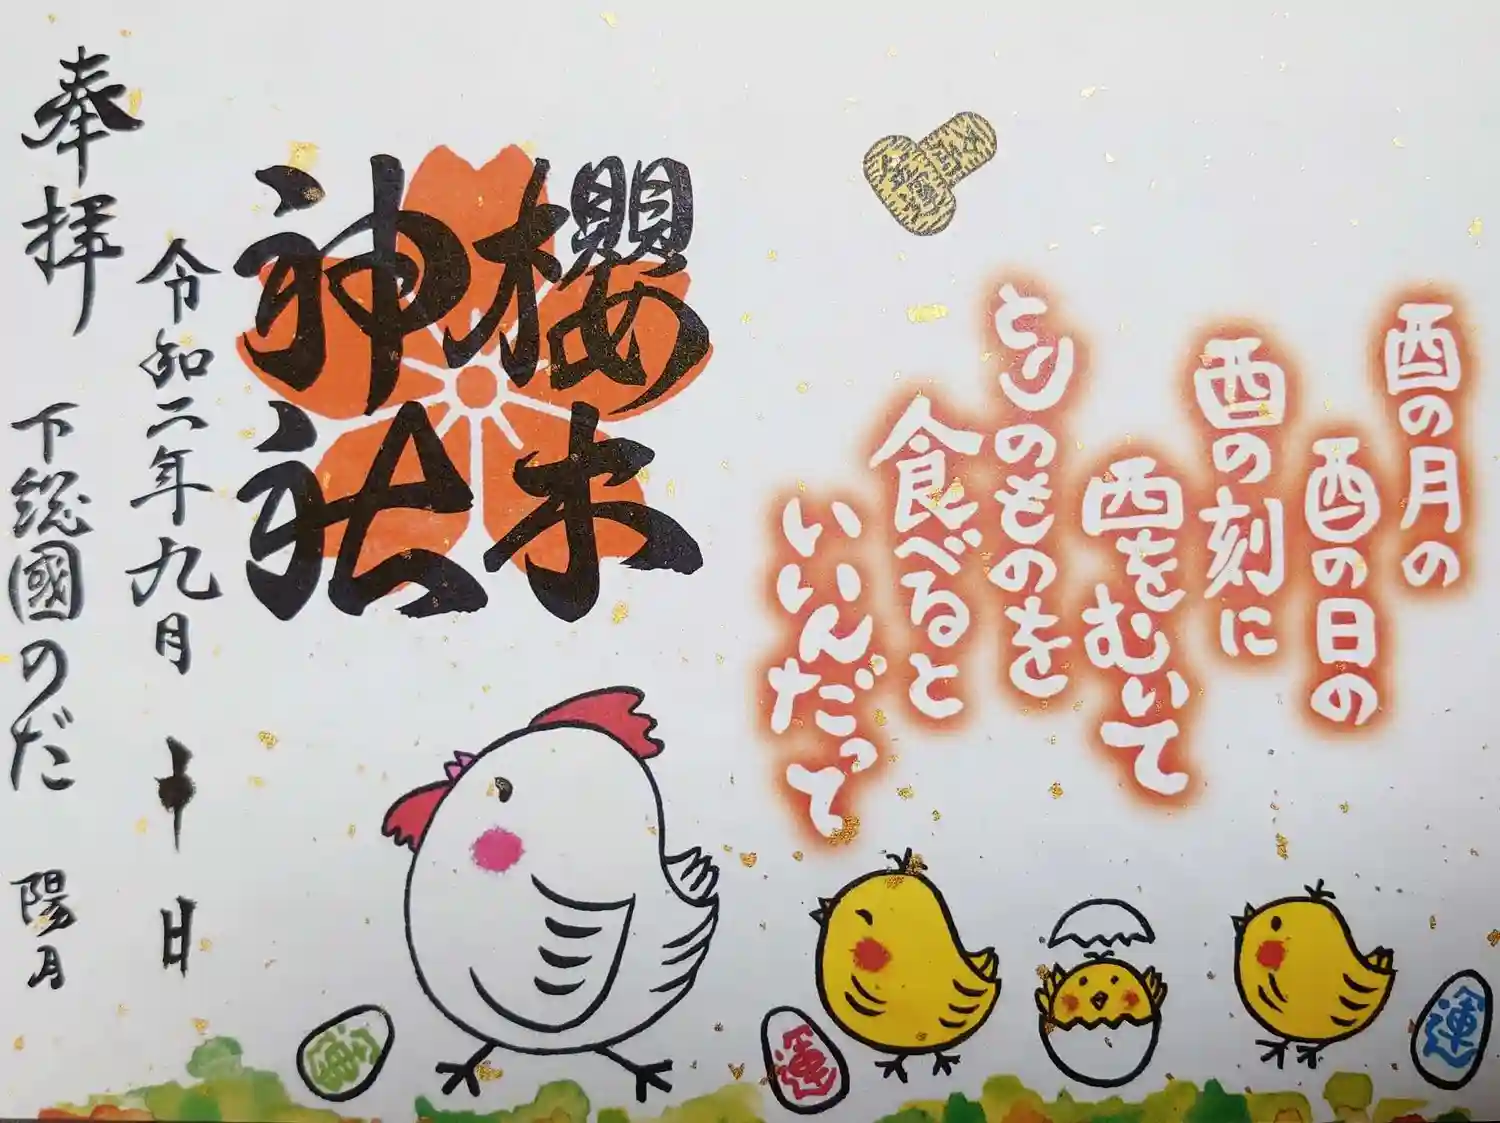 酉の月の
酉の日の
酉の刻に
西をむいて
とりのものを
食べると
いいんだって
櫻木
神社
令和二年九月十日
奉拝
下総國のだ 陽月
運
運
運